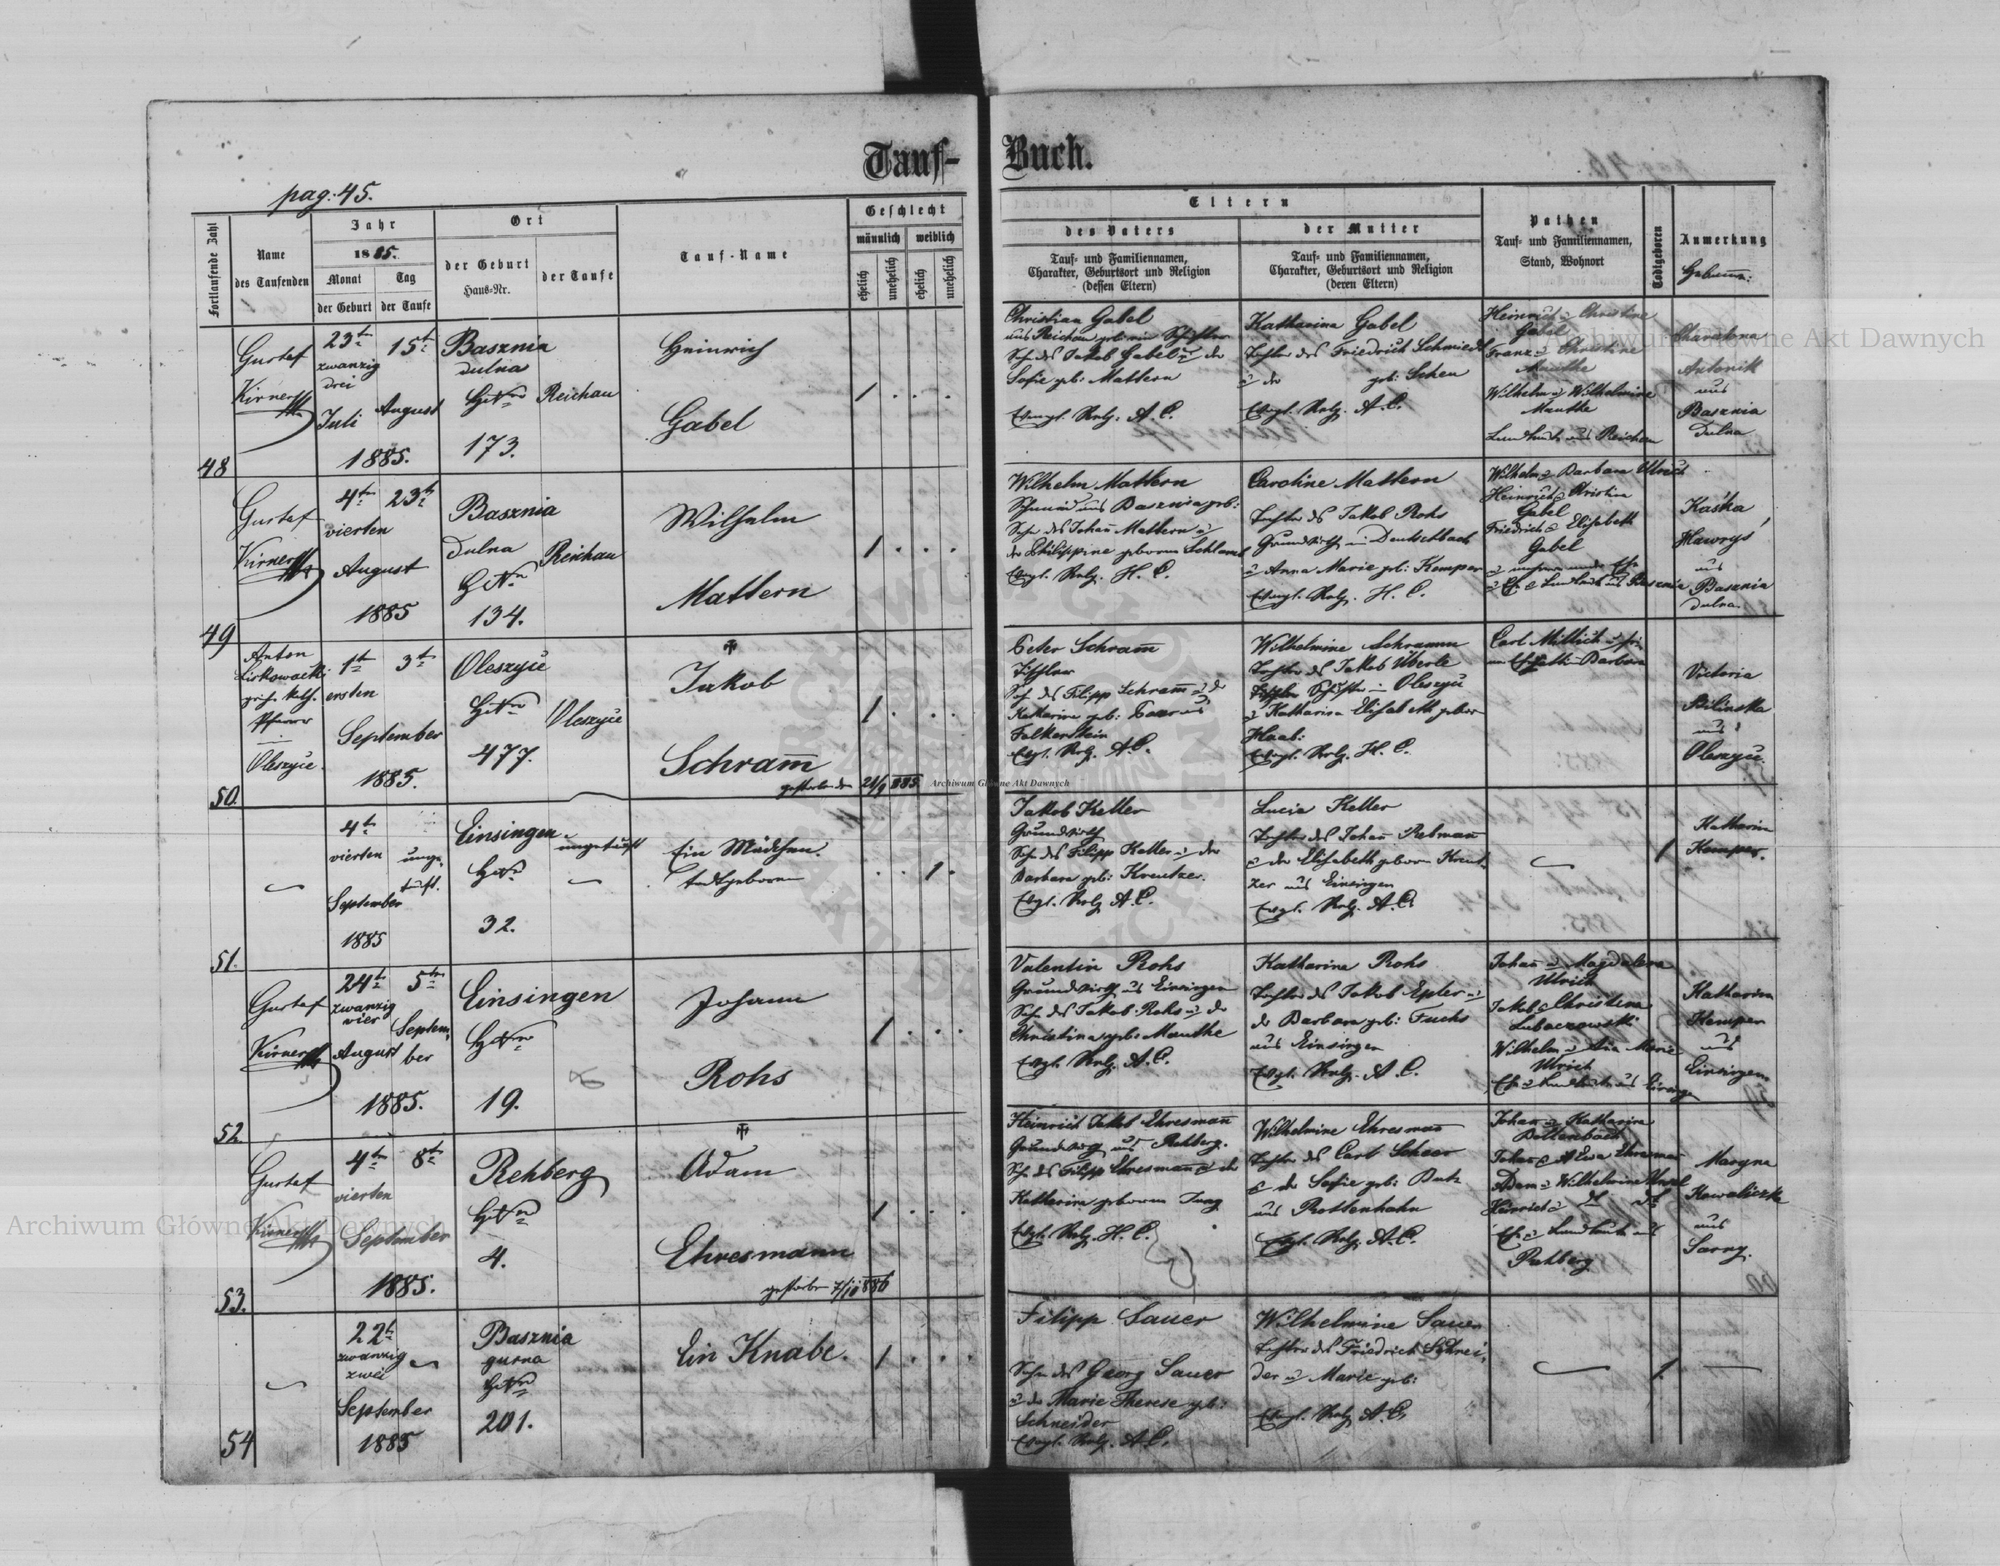 Tauf-
Buch.
pag. 45.
Fortlaufende Zahl
Name
des Taufenden
Jahr
1885.
Monat
Tag
der Geburt
der Taufe
Ort
der Geburt
Haus-Nr.
der Taufe
Tauf-Name
Geschlecht
männlich
weiblich
ehelich
unehelich
ehelich
unehelich
Eltern
des Vaters
Tauf- und Familiennamen,
Charakter, Geburtsort und Religion
(dessen Eltern)
der Mutter
Tauf- und Familiennamen,
Charakter, Geburtsort und Religion
(deren Eltern)
Pathen
Tauf- und Familiennamen,
Stand, Wohnort
Todtgeboren
Anmerkung
48
Gustaf
Kirner
23t
15t
zwanzig
drei
Juli
August
1885.
Basznia
dulna
HsNro
173.
Reichau
Heinrich
Gabel
1
Christian Gabel
Sohn des Jakob Gabel u der
Sofie geb: Mattern
Evngl. Relg. A. C.
Katharina Gabel
Tochter des Friedrich Schmiedt
u der geb: Scheu
Evngl. Relg. A. C.
Heinrich u Christine
Gabel
Franz u Christine
Manthe
Wilhelm u Wilhelmine
Manthe
Landleute aus Reichau
Antonik
aus
Basznia
dulna
49
Gustaf
Kirner
4t
23t
vierten
August
1885
Basznia
Dulna
HsNr
134.
Reichau
Wilhelm
Mattern
1
Wilhelm Mattern
Sohn des Johann Mattern u
der Philippine geboren
Evngl. Relg. H. C.
Caroline Mattern
Tochter des Jakob Rohs
Grundwirth in Deutschbach
u Anna Marie geb: Kemper
Evngl. Relg. H. C.
Wilhelm u Barbara Ulrich
Heinrich u Kristina
Gabel
Friedrich u Elisabeth
Gabel
Kaśka
Hawrys
aus
Basznia
dulna
50.
Anton
Pfarrer
Oleszyce.
1t
3t
ersten
September
1885.
Oleszyce
HsNro
477.
Oleszyce
Jakob
Schram̄
gestorben den 21/9 885
1
Peter Schram̄
Tischler
Sohn des Filipp Schram̄ u der
Katharine geb:
Falkenstein
Evgl. Relg. A.C.
Wilhelmine Schramm
Tochter des Jakob Überle
in Oleszyce
u Katharina Elisabeth geboren
Haab:
Evngl. Relg. H. C.
Carl Millich u
Barbara
Victoria
Bilinska
aus
Oleszyce.
51.
4t
vierten
unge-
tauft.
September
1885
Einsingen
HsNro
32.
ungetauft
Ein Mädchen.
todtgeboren
1
Jakob Keller
Grundwirth
Sohn des Filipp Keller u der
Barbara geb: Kreutzer.
Evgl. Relg. A.C.
Lucia Keller
Tochter des Johan̄ Rebman̄
u der Elisabeth geboren Kreut-
zer aus Einsingen
Evgl. Relg. A.C.
1
Katharina
Kemper.
52.
Gustaf
Kirner
24t
5ten
zwanzig
vier
August
Septem-
ber
1885.
Einsingen
HsNro
19.
Johann
Rohs
1
Valentin Rohs
Grundwirth aus Einsingen
Sohn des Jakob Rohs u der
Christina geb: Manthe
Evngl. Relg. A. C.
Katharine Rohs
Tochter des Jakob Epler u
der Barbara geb: Fuchs
aus Einsingen
Evgl. Relg. A. C.
Johan̄ u Magdalena
Ulrich
Jakob u Christina
Lubaczowski
Wilhelm u Marie
Ulrich
Katharina
Kemper
aus
Einsingen
53.
Gustaf
Kirner
4ten
8t
vierten
September
1885.
Rehberg
HsNro
4.
Adam
Ehresmann
gestorben 7/10 886
1
Heinrich Jakob Ehresman̄
Grundwirth aus Rehberg.
Sohn des Filipp Ehresman̄ u der
Katharina geboren
Evgl. Relg. H. C.
Wilhelmine Ehresman̄
Tochter des Carl Scheer
u der Sofie geb: Butz
aus Rottenhahn
Evgl. Relg. A.C.
Johan̄ u Katharina
Johan̄ u Ewa Ehresman̄
Adam u Wilhelmine
Heinrich u
Rehberg
Maryna
Kowaliczka
aus
Sarny.
54
22t
zwanzig
zwei
September
1885
Basznia
gurna
HsNro
201.
Ein Knabe.
1
Filipp Sauer
Sohn des Georg Sauer
u der Marie Therese geb:
Schneider
Evngl. Relg. A.C.
Wilhelmine Sauer
Tochter des Friedrich Schnei-
der u Marie geb:
Evngl. Relg. A.C.
1.
Archiwum Główne Akt Dawnych
Archiwum Główne Akt Dawnych
Archiwum Główne Akt Dawnych